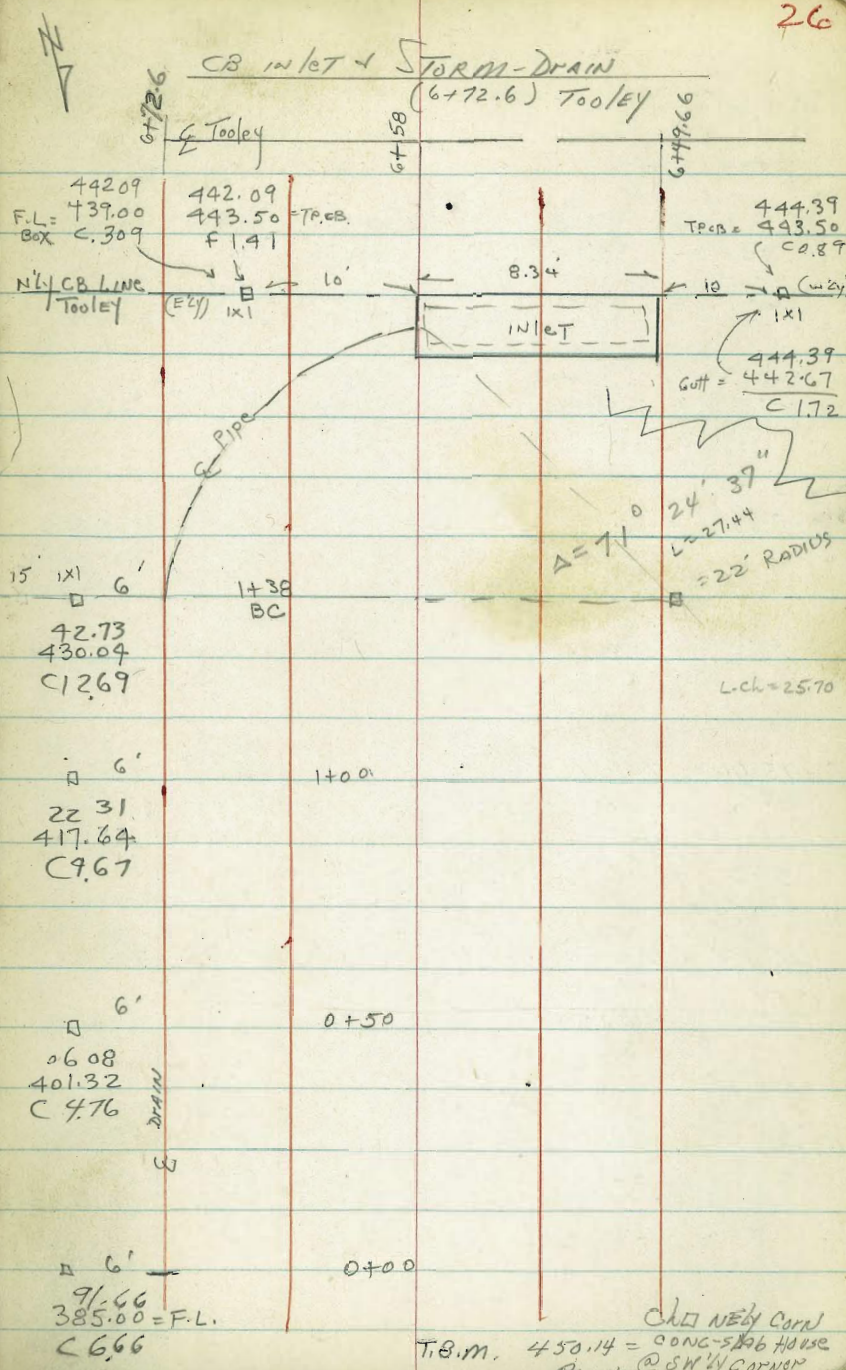 26
CB INLET & STORM-DRAIN
(6+72.6) TOOLEY
6+72.6
℄ Tooley
6+58
6+49.66
442.09
F.L.= 439.00
BOX C.3.09
442.09
443.50 = T.P.CB.
F 1.41
444.39
T.P.CB = 443.50
C 0.89
N'LY CB LINE
TOOLEY
(E'LY)
1X1
10'
8.34'
10
(W'LY)
1X1
INLET
444.39
Gutt = 442.67
C 1.72
℄ PIPE
Δ = 71° 24' 37"
L = 27.44
= 22' RADIUS
15' 1X1 6'
1+38
BC
42.73
430.04
C12.69
L.Ch = 25.70
6'
1+00
22 31
417.64
C4.67
6'
0+50
06 08
401.32
C 4.76
℄ DRAIN
6'
0+00
91.66
385.00 = F.L.
C 6.66
Ch□ NELY CORN
T.B.M. 450.14 = CONC-SLAB HOUSE
@ SW'LY CORNER